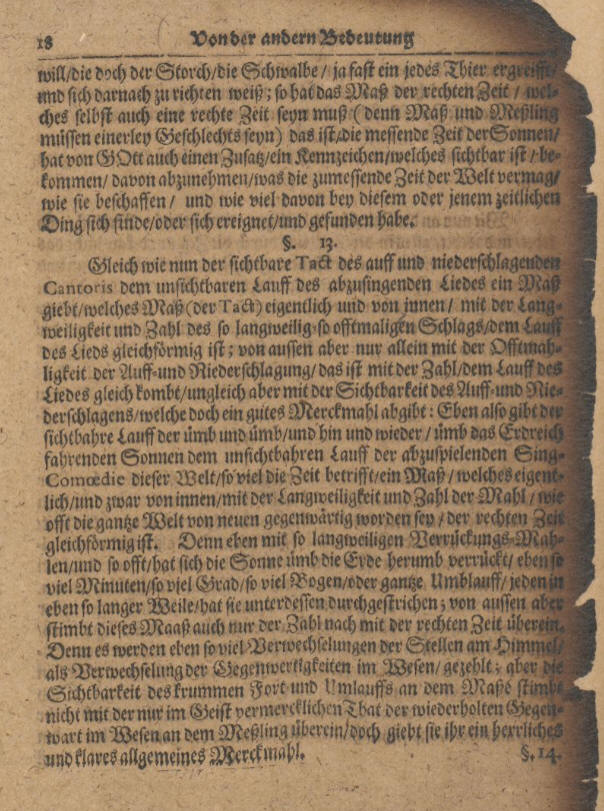 18 Von der andern Bedeutung
will/die doch der Storch/die Schwalbe/ ja fast ein jedes Thier ergreifft/
und sich darnach zu richten weiß; so hat das Maß der rechten Zeit/ wel-
ches selbst auch eine rechte Zeit seyn muß (denn Maß und Meßling
müssen einerley Geschlechts seyn) das ist/die messende Zeit der Sonnen/
hat von GOtt auch einen Zusatz/ein Kennzeichen/welches sichtbar ist/be-
kommen/ davon abzunehmen/was die zumessende Zeit der Welt vermag/
wie sie beschaffen/ und wie viel davon bey diesem oder jenem zeitlichen
Ding sich finde/oder sich ereignet/und gefunden habe.
§. 13.
Gleich wie nun der sichtbare Tact des auff und niederschlagenden
Cantoris dem unsichtbaren Lauff des abzusingenden Liedes ein Maß
giebt/welches Maß (der Tact) eigentlich und von innen/ mit der Lang-
weiligkeit und Zahl des so langweilig-so offtmaligen Schlags/dem Lauff
des Lieds gleichförmig ist; von aussen aber nur allein mit der Offtmah-
ligkeit der Auff-und Niederschlagung/das ist mit der Zahl/dem Lauff des
Liedes gleich kombt/ungleich aber mit der Sichtbarkeit des Auff-und Nie-
derschlagens/welche doch ein gutes Merckmahl abgibt: Eben also gibt der
sichtbahre Lauff der ümb und ümb/und hin und wieder/ ümb das Erdreich
fahrenden Sonnen dem unsichtbahren Lauff der abzuspielenden Sing-
Comœdie dieser Welt/so viel die Zeit betrifft/ein Maß/welches eigent-
lich/und zwar von innen/mit der Langweiligkeit und Zahl der Mahl/ wie
offt die gantze Welt von neuen gegenwärtig worden sey/der rechten Zeit
gleichförmig ist. Denn eben mit so langweiligen Verrückungs-Mah-
len/und so offt/hat sich die Sonne ümb die Erde herumb verrückt/ eben so
viel Minuten/so viel Grad/so viel Bogen/oder gantze Umblauff/jeden in
eben so langer Weile/hat sie unterdessen durchgestrichen; von aussen aber
stimbt dieses Maaß auch nur der Zahl nach mit der rechten Zeit überein.
Denn es werden eben so viel Verwechselungen der Stellen am Himmel/
als Verwechselung der Gegenwertigkeiten im Wesen/gezehlt; aber die
Sichtbarkeit des krummen Fort und Umlauffs an dem Maße stimbt
nicht mit der nur im Geist vermercklichen That der wiederholten Gegen-
wart im Wesen an dem Meßling überein/doch giebt sie ihr ein herrliches
und klares allgemeines Merckmahl. §. 14.